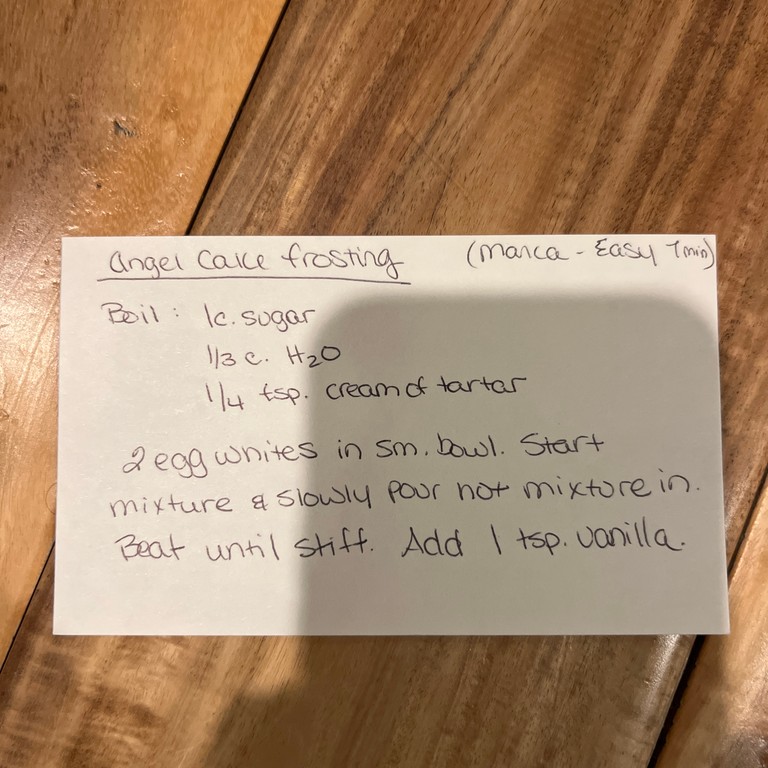 Angel Cake frosting (Marca - Easy 7 min)
Boil: 1c. sugar
1/3 c. H2O
1/4 tsp. cream of tartar
2 egg whites in sm. bowl. Start
mixture & slowly pour hot mixture in.
Beat until stiff. Add 1 tsp. vanilla.